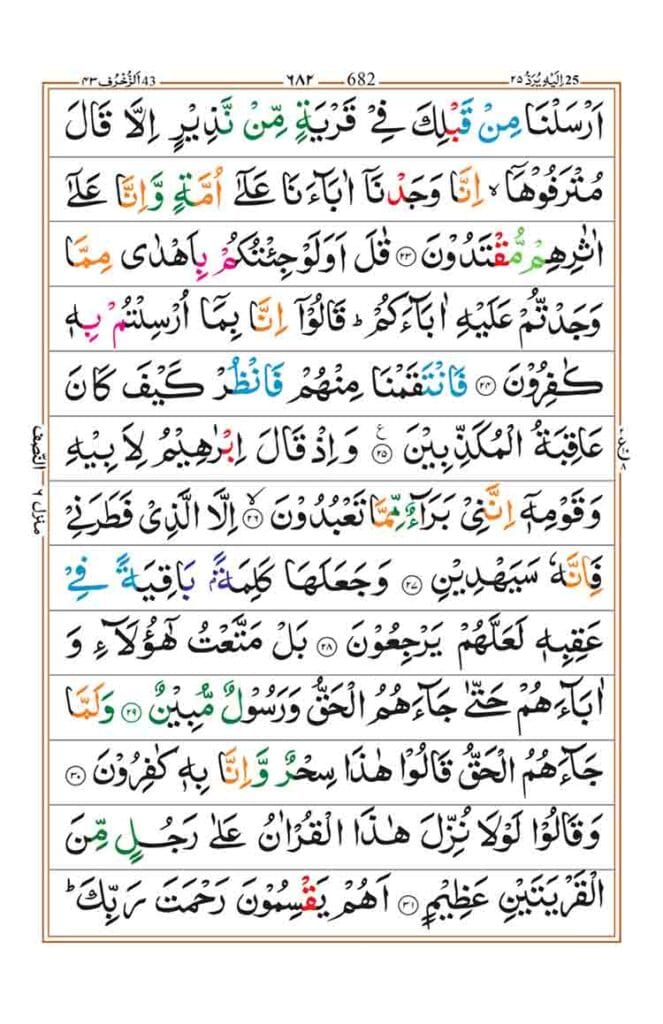 25 اِلَیْهِ یُرَدُّ ۲۵
682 ٦٨٢
43 اَلزُّخْرُف ۴۳
اَرْسَلْنَا مِنْ قَبْلِكَ فِیْ قَرْیَةٍ مِّنْ نَّذِیْرٍ اِلَّا قَالَ
مُتْرَفُوْهَاۤ ۙ اِنَّا وَجَدْنَاۤ اٰبَآءَنَا عَلٰۤی اُمَّةٍ وَّاِنَّا عَلٰۤی
اٰثٰرِهِمْ مُّقْتَدُوْنَ ۟۲۳ قٰلَ اَوَلَوْ جِئْتُكُمْ بِاَهْدٰی مِمَّا
وَجَدْتُّمْ عَلَیْهِ اٰبَآءَكُمْ ؕ قَالُوْۤا اِنَّا بِمَاۤ اُرْسِلْتُمْ بِهٖ
كٰفِرُوْنَ ۟۲۴ فَانْتَقَمْنَا مِنْهُمْ فَانْظُرْ كَیْفَ كَانَ
عَاقِبَةُ الْمُكَذِّبِیْنَ ۟۲۵ ع وَاِذْ قَالَ اِبْرٰهِیْمُ لِاَبِیْهِ
وَقَوْمِهٖۤ اِنَّنِیْ بَرَآءٌ مِّمَّا تَعْبُدُوْنَ ۟ۙ۲۶ اِلَّا الَّذِیْ فَطَرَنِیْ
فَاِنَّهٗ سَیَهْدِیْنِ ۟۲۷ وَجَعَلَهَا كَلِمَةًۢ بَاقِیَةً فِیْ
عَقِبِهٖ لَعَلَّهُمْ یَرْجِعُوْنَ ۟۲۸ بَلْ مَتَّعْتُ هٰۤؤُلَآءِ وَ
اٰبَآءَهُمْ حَتّٰی جَآءَهُمُ الْحَقُّ وَرَسُوْلٌ مُّبِیْنٌ ۟۲۹ وَلَمَّا
جَآءَهُمُ الْحَقُّ قَالُوْا هٰذَا سِحْرٌ وَّاِنَّا بِهٖ كٰفِرُوْنَ ۟۳۰
وَقَالُوْا لَوْلَا نُزِّلَ هٰذَا الْقُرْاٰنُ عَلٰی رَجُلٍ مِّنَ
الْقَرْیَتَیْنِ عَظِیْمٍ ۟۳۱ اَهُمْ یَقْسِمُوْنَ رَحْمَتَ رَبِّكَ ؕ
النّصف
منزل ٦